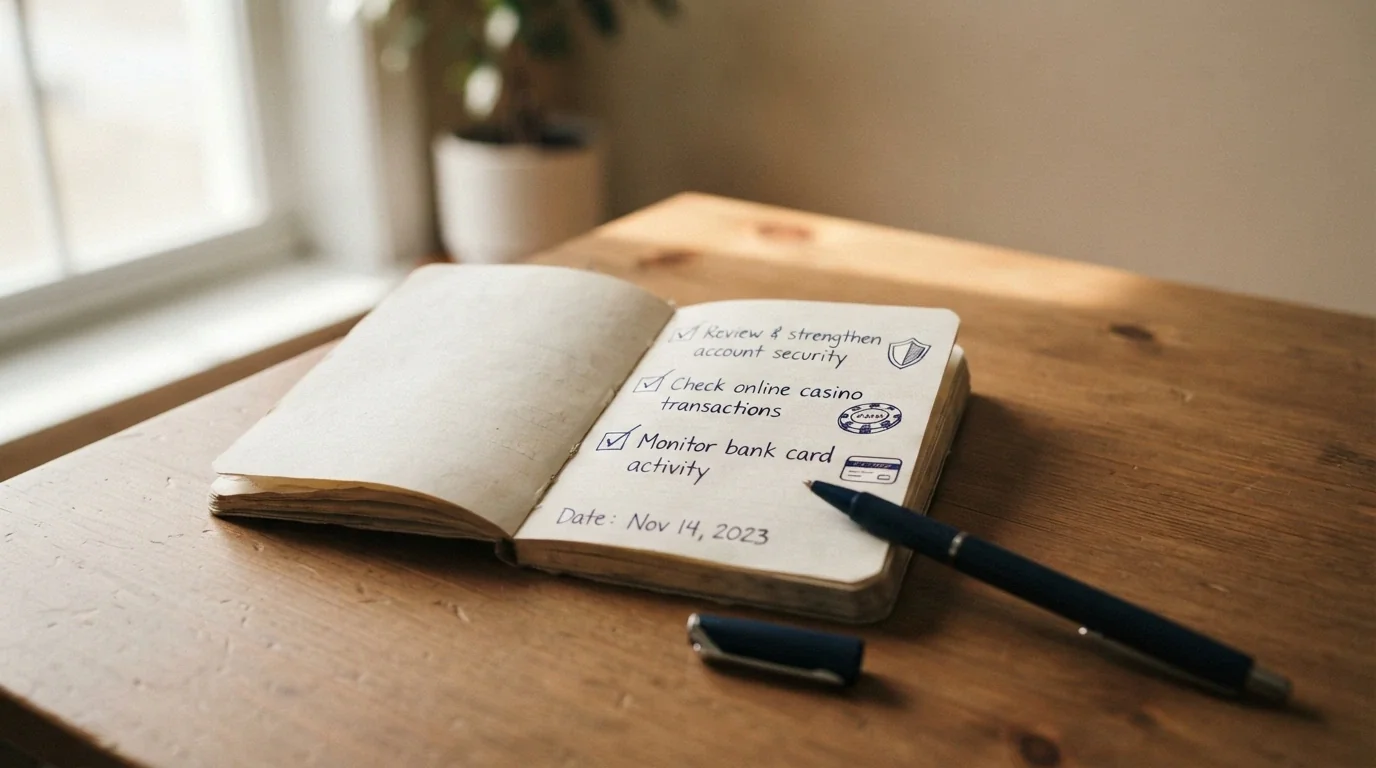 Review & strengthen
account security
Check online casino
transactions
Monitor bank card
activity
Date: Nov 14, 2023